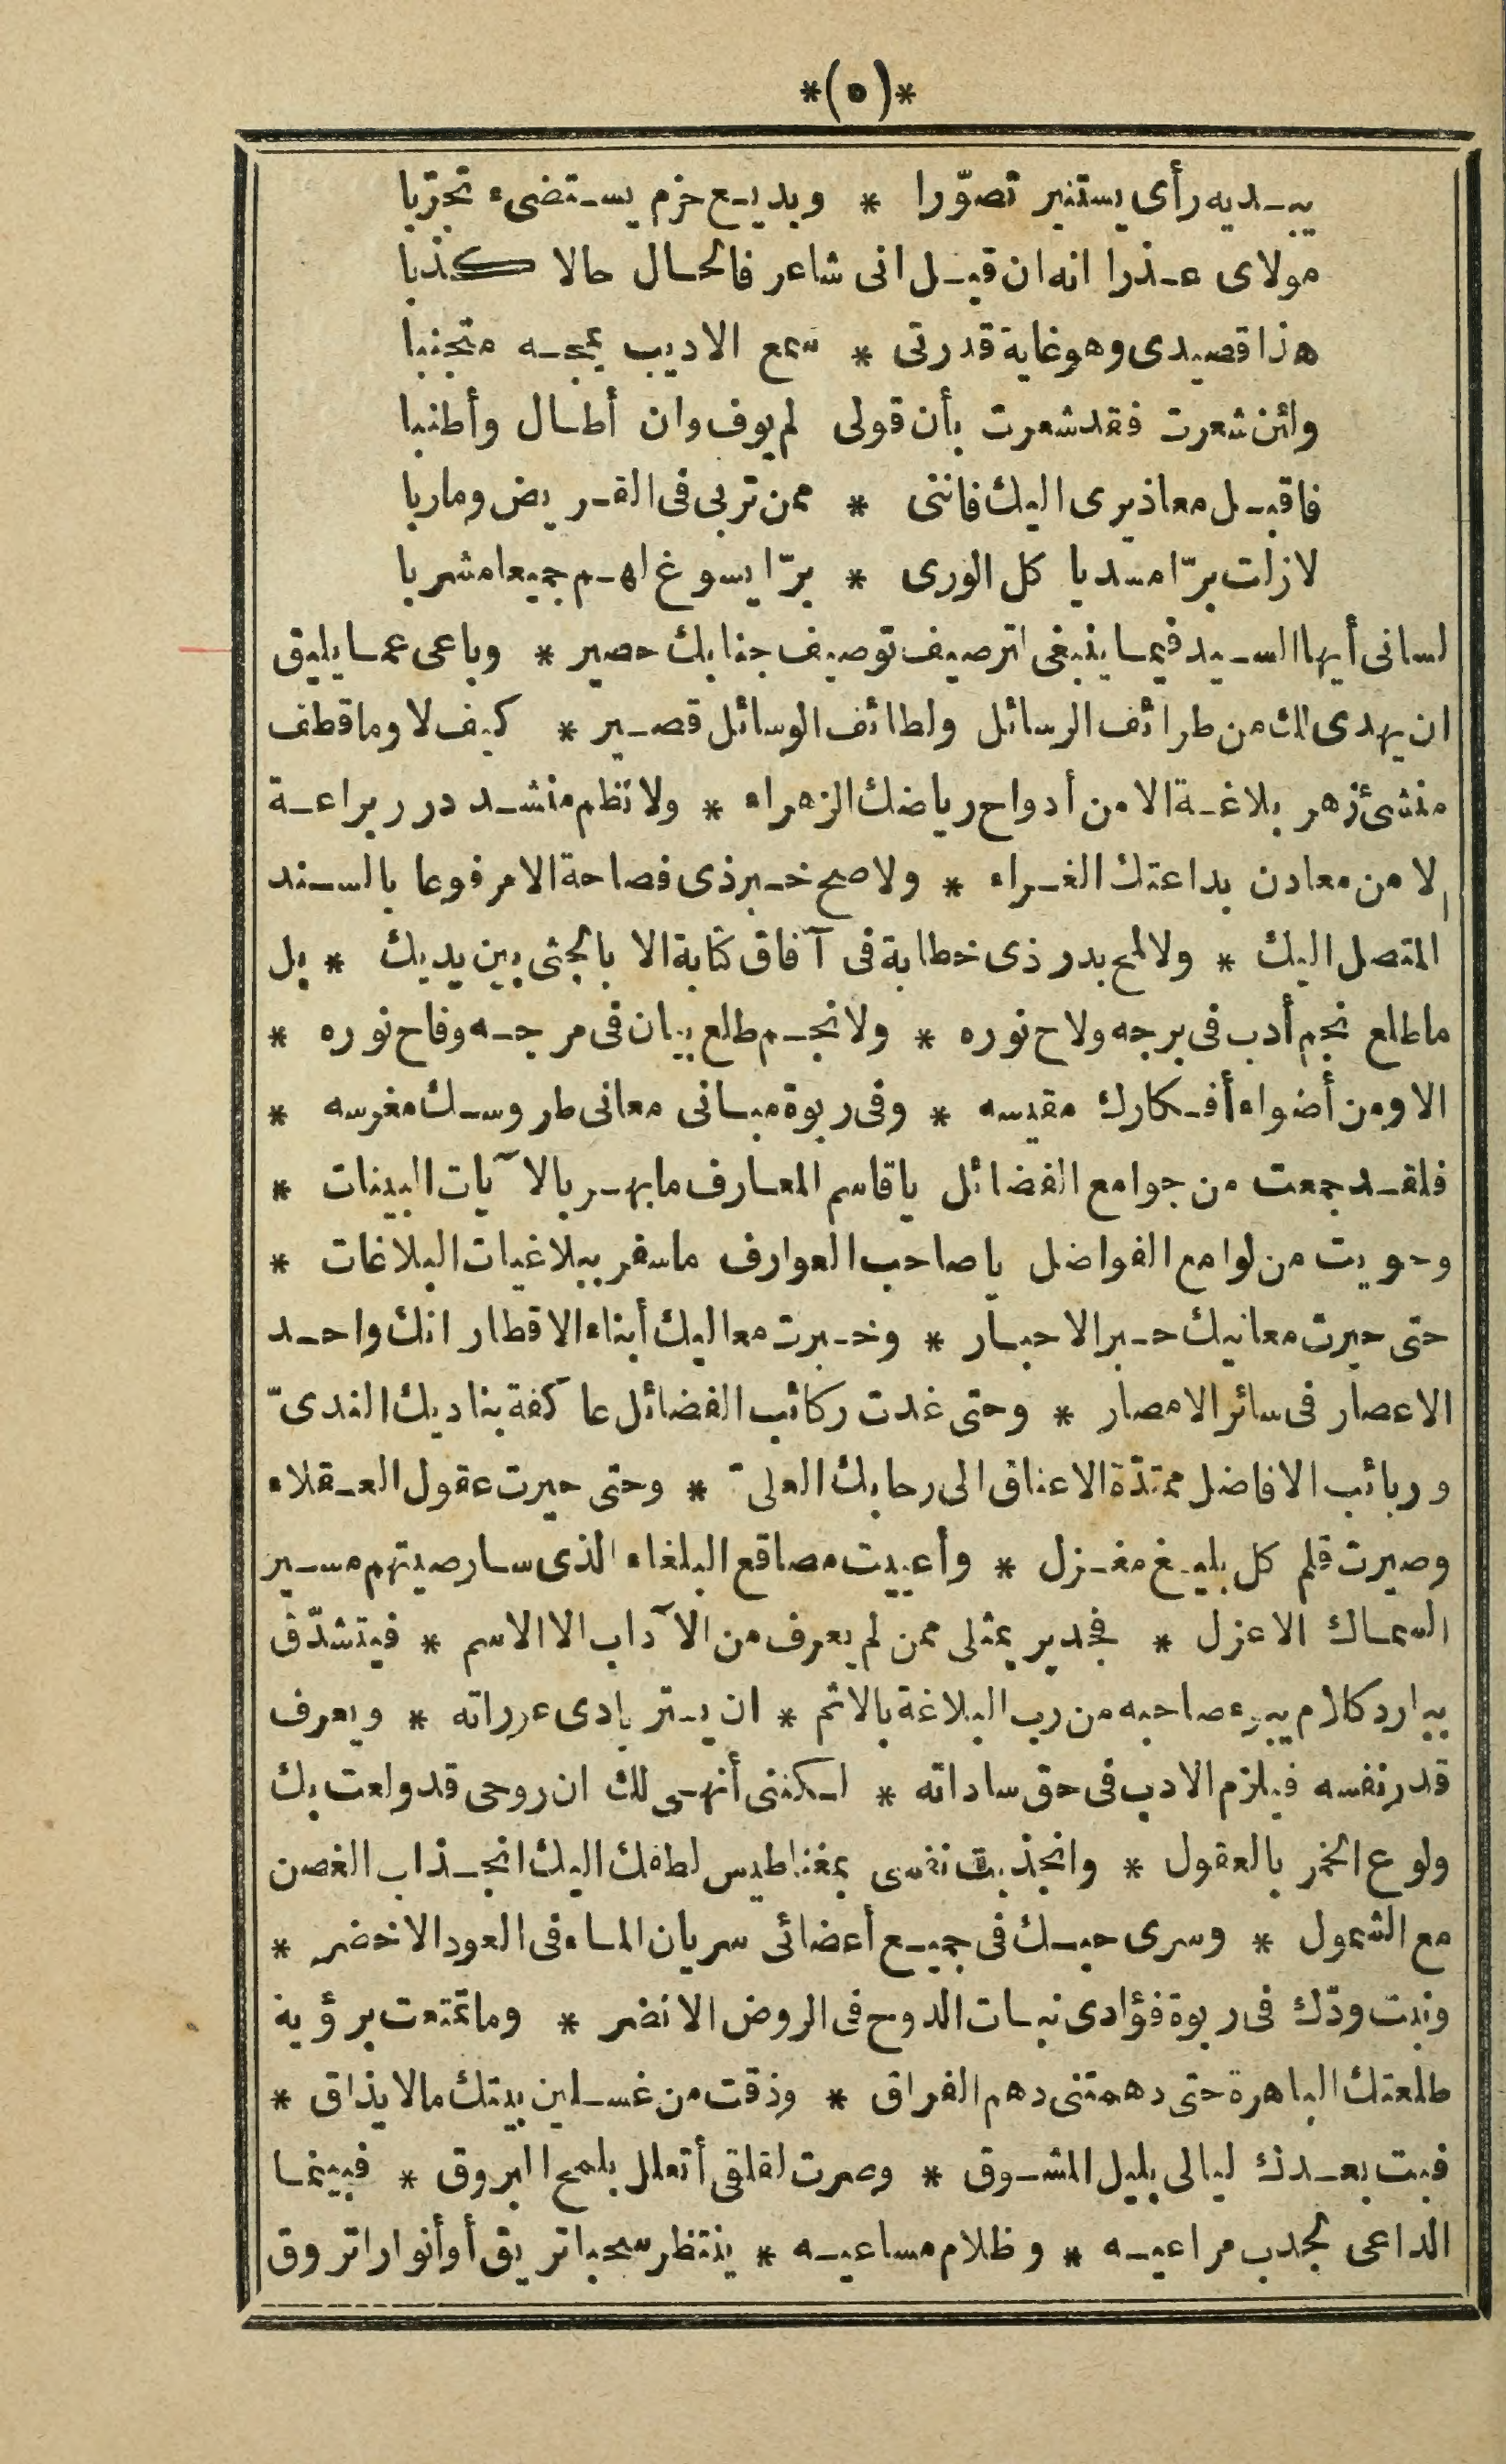 *(٥)*
يبديه رأى يستنير تصوّرا * وبديع حزم يستضىء تجرّبا
مولاى عذرا انه ان قيل انى شاعر فالحال حالا كذبا
هذا قصيدى وهو غاية قدرتى * سمع الاديب يمجه متجنبا
ولئن شعرت فقد شعرت بأن قولى لم يوف وان أطال وأطنبا
فاقبل معاذيرى اليك فاننى * ممن تربى فى القريض وما ربا
لا زلت برّا مسديا كل الورى * برّا يسوغ لهم جميعا مشربا
لسانى أيها السيد فيما ينبغى لترصيف توصيف جنابك حصير * وباعى عما يليق
ان يهدى لك من طرائف الرسائل ولطائف الوسائل قصير * كيف لا وما قطف
منشئ زهر بلاغة الا من أدواح رياضك الزهراء * ولا نظم منشد درر براعة
الا من معادن بداعتك الغراء * ولا صح خبر ذى فصاحة الا مرفوعا بالسند
المتصل اليك * ولا لمح بدر ذى خطابة فى آفاق كتابة الا بالجثى بين يديك * بل
ما طلع نجم أدب فى برجه ولاح نوره * ولا نجم طلع بيان فى مرجه وفاح نوره *
الا ومن أضواء أفكارك مقبسه * وفى ربوة مبانى معانى طروسك مغرسه *
فلقد جمعت من جوامع الفضائل يا قاسم المعارف ما بهر بالآيات البينات *
وحويت من لوامع الفواضل يا صاحب العوارف ما سفر ببلاغيات البلاغات *
حتى حيرت معانيك حبر الاحبار * وخبرت معاليك أبناء الاقطار انك واحد
الاعصار فى سائر الامصار * وحتى غدت ركائب الفضائل عاكفة بناديك الندىّ
وربائب الافاضل ممتدّة الاعناق الى رحابك العلىّ * وحتى حيرت عقول العقلاء
وصيرت قلم كل بليغ مغزل * وأعييت مصاقع البلغاء الذى سار صيتهم مسير
السماك الاعزل * فجدير بمثلى ممن لم يعرف من الآداب الا الاسم * فيتشدّق
ببارد كلام يبوء صاحبه من رب البلاغة بالاثم * ان يستر بادى عوراته * ويعرف
قدر نفسه فيلزم الادب فى حق ساداته * لكننى أنهى لك ان روحى قد ولعت بك
ولوع الخمر بالعقول * وانجذبت نفسى بمغناطيس لطفك اليك انجذاب الغصن
مع الشمول * وسرى حبك فى جميع أعضائى سريان الماء فى العود الاخضر *
ونبت ودّك فى ربوة فؤادى نبات الدوح فى الروض الانضر * وما تمتعت برؤية
طلعتك الباهرة حتى دهمتنى دهم الفراق * وذقت من غسلين بينك ما لا يذاق *
فبت بعدك ليالى بليل المشوق * وصرت لقلقى أتعلل بلمح البروق * فبينما
الداعى لجدب مراعيه * وظلام مساعيه * ينتظر سحبا تريق أو أنوارا تروق